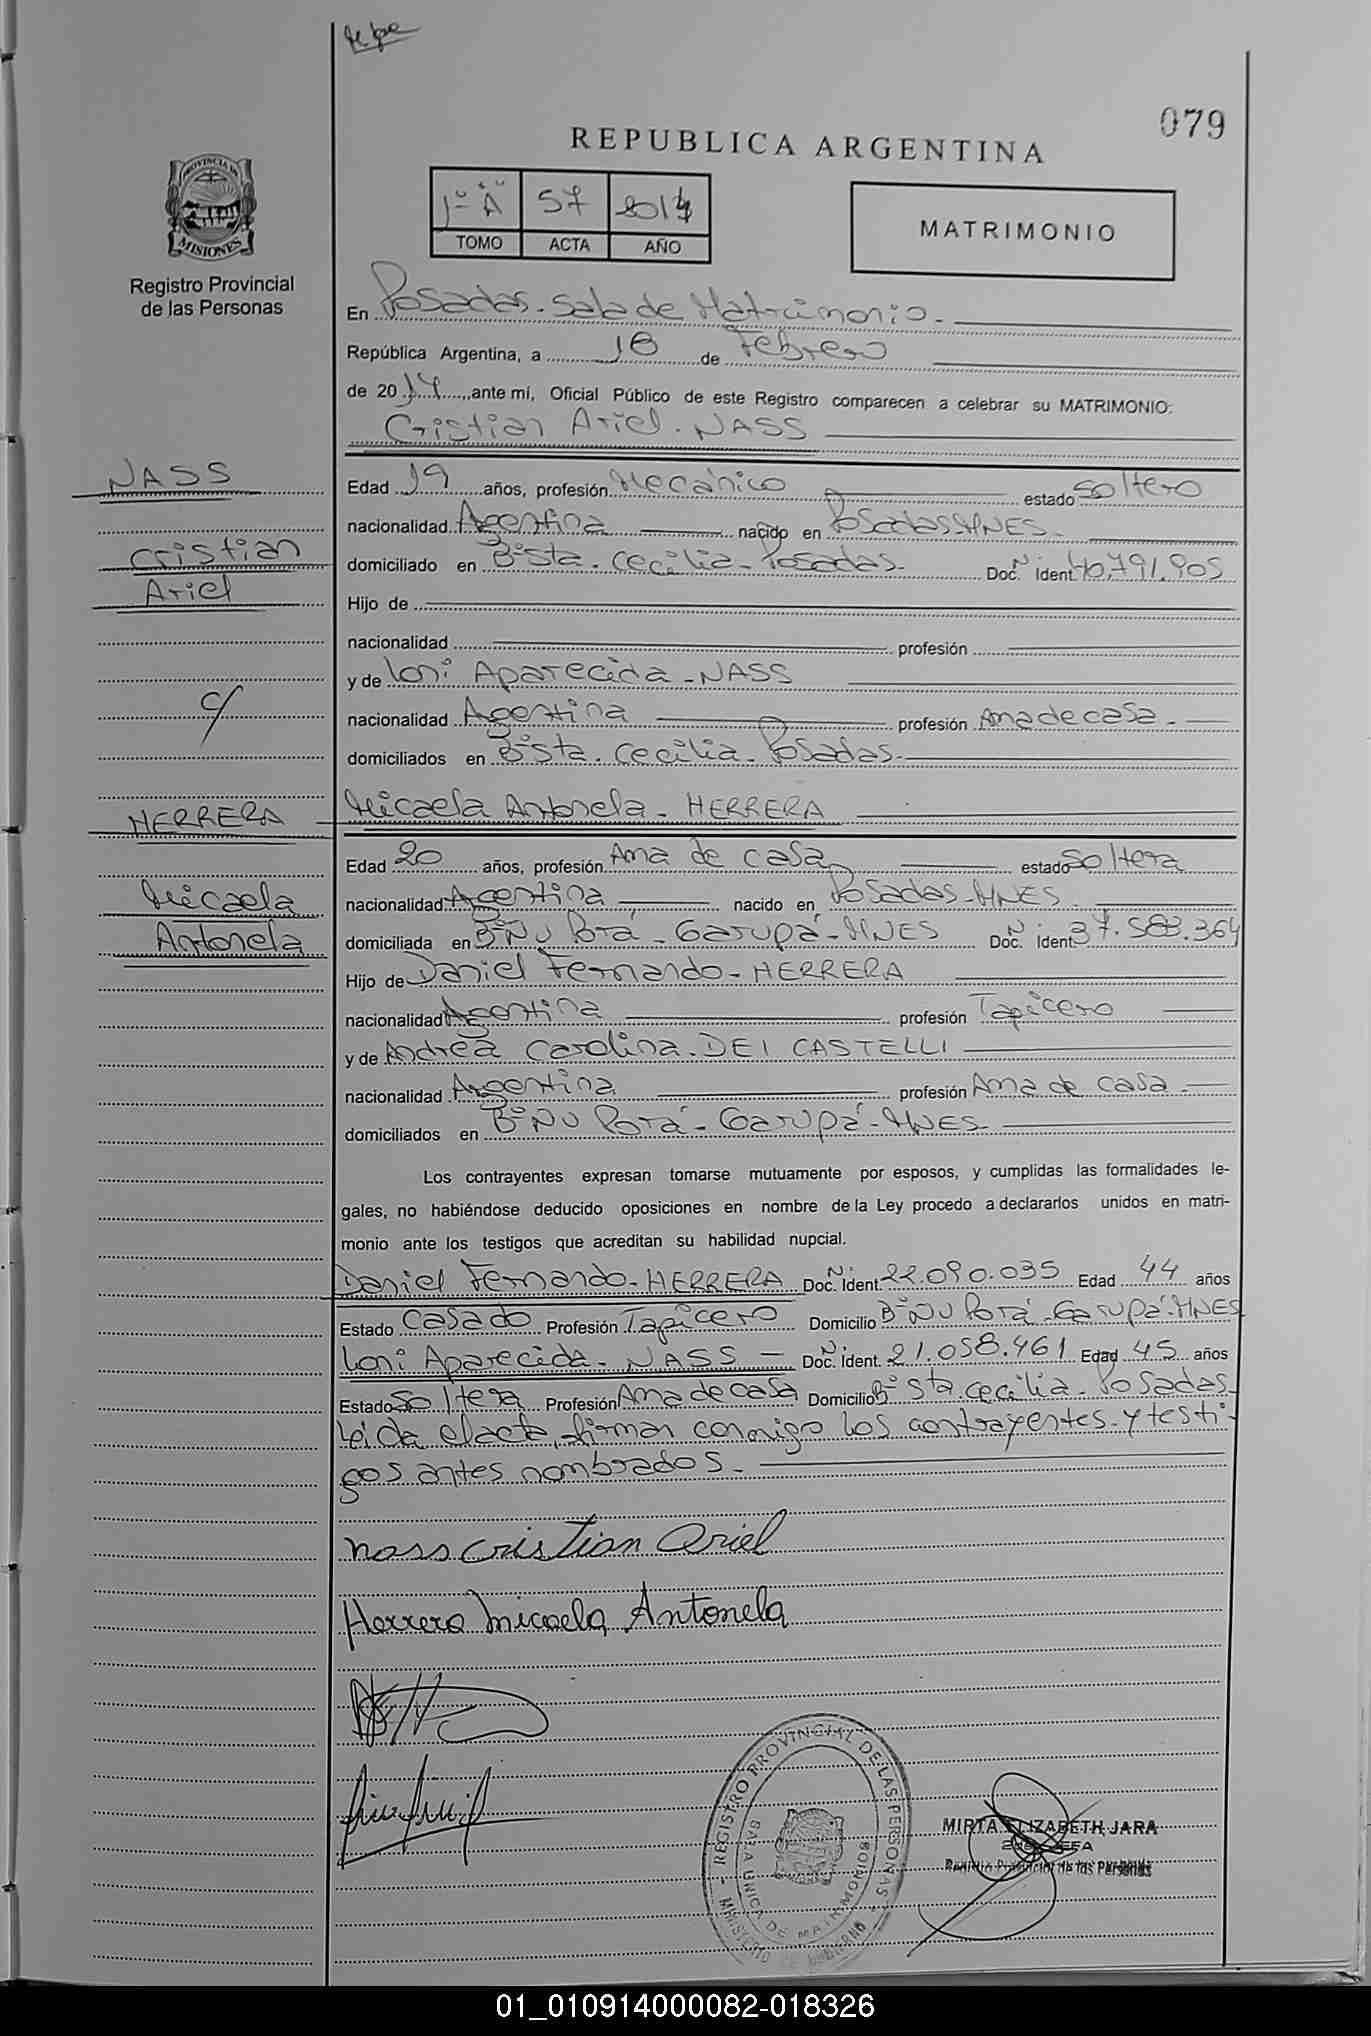 079
REPUBLICA ARGENTINA
PROVINCIA DE
MISIONES
Registro Provincial
de las Personas
1º "A" 57 2014
TOMO ACTA AÑO
MATRIMONIO
En Posadas. Sala de Matrimonio.
República Argentina, a 18 de Febrero
de 2014, ante mí, Oficial Público de este Registro comparecen a celebrar su MATRIMONIO:
Cristian Ariel. NASS
NASS
Cristian
Ariel
c/
HERRERA
Micaela
Antonela
Edad 19 años, profesión Mecánico estado soltero
nacionalidad Argentina nacido en Posadas MNES.
domiciliado en Bº Sta. Cecilia - Posadas. Doc. Nº Ident. 40.791.905
Hijo de
nacionalidad profesión
y de Loni Aparecida - NASS
nacionalidad Argentina profesión Ama de casa.
domiciliados en Bº Sta. Cecilia. Posadas.
Micaela Antonela - HERRERA
Edad 20 años, profesión Ama de casa estado soltera
nacionalidad Argentina nacido en Posadas - MNES.
domiciliada en Bº Ñu Porá - Garupá - MNES Doc. Nº Ident. 37.583.364
Hijo de Daniel Fernando - HERRERA
nacionalidad Argentina profesión Tapicero
y de Andrea Carolina. DEI CASTELLI
nacionalidad Argentina profesión Ama de casa.
domiciliados en Bº Ñu Porá - Garupá - MNES
Los contrayentes expresan tomarse mutuamente por esposos, y cumplidas las formalidades le-
gales, no habiéndose deducido oposiciones en nombre de la Ley procedo a declararlos unidos en matri-
monio ante los testigos que acreditan su habilidad nupcial.
Daniel Fernando - HERRERA Doc. Nº Ident. 22.090.035 Edad 44 años
Estado Casado Profesión Tapicero Domicilio Bº Ñu Porá - Garupá - MNES
Loni Aparecida - NASS - Doc. Nº Ident. 21.058.461 Edad 45 años
Estado soltera Profesión Ama de casa Domicilio Bº Sta. Cecilia - Posadas
Leida el acta, firman conmigo los contrayentes y testi-
gos antes nombrados.
Nass Cristian Ariel
Herrera Micaela Antonela
REGISTRO PROVINCIAL DE LAS PERSONAS
SALA UNICA DE MATRIMONIOS
MINISTERIO DE GOBIERNO
MIRTA ELIZABETH JARA
Registro Provincial de las Personas
01_010914000082-018326